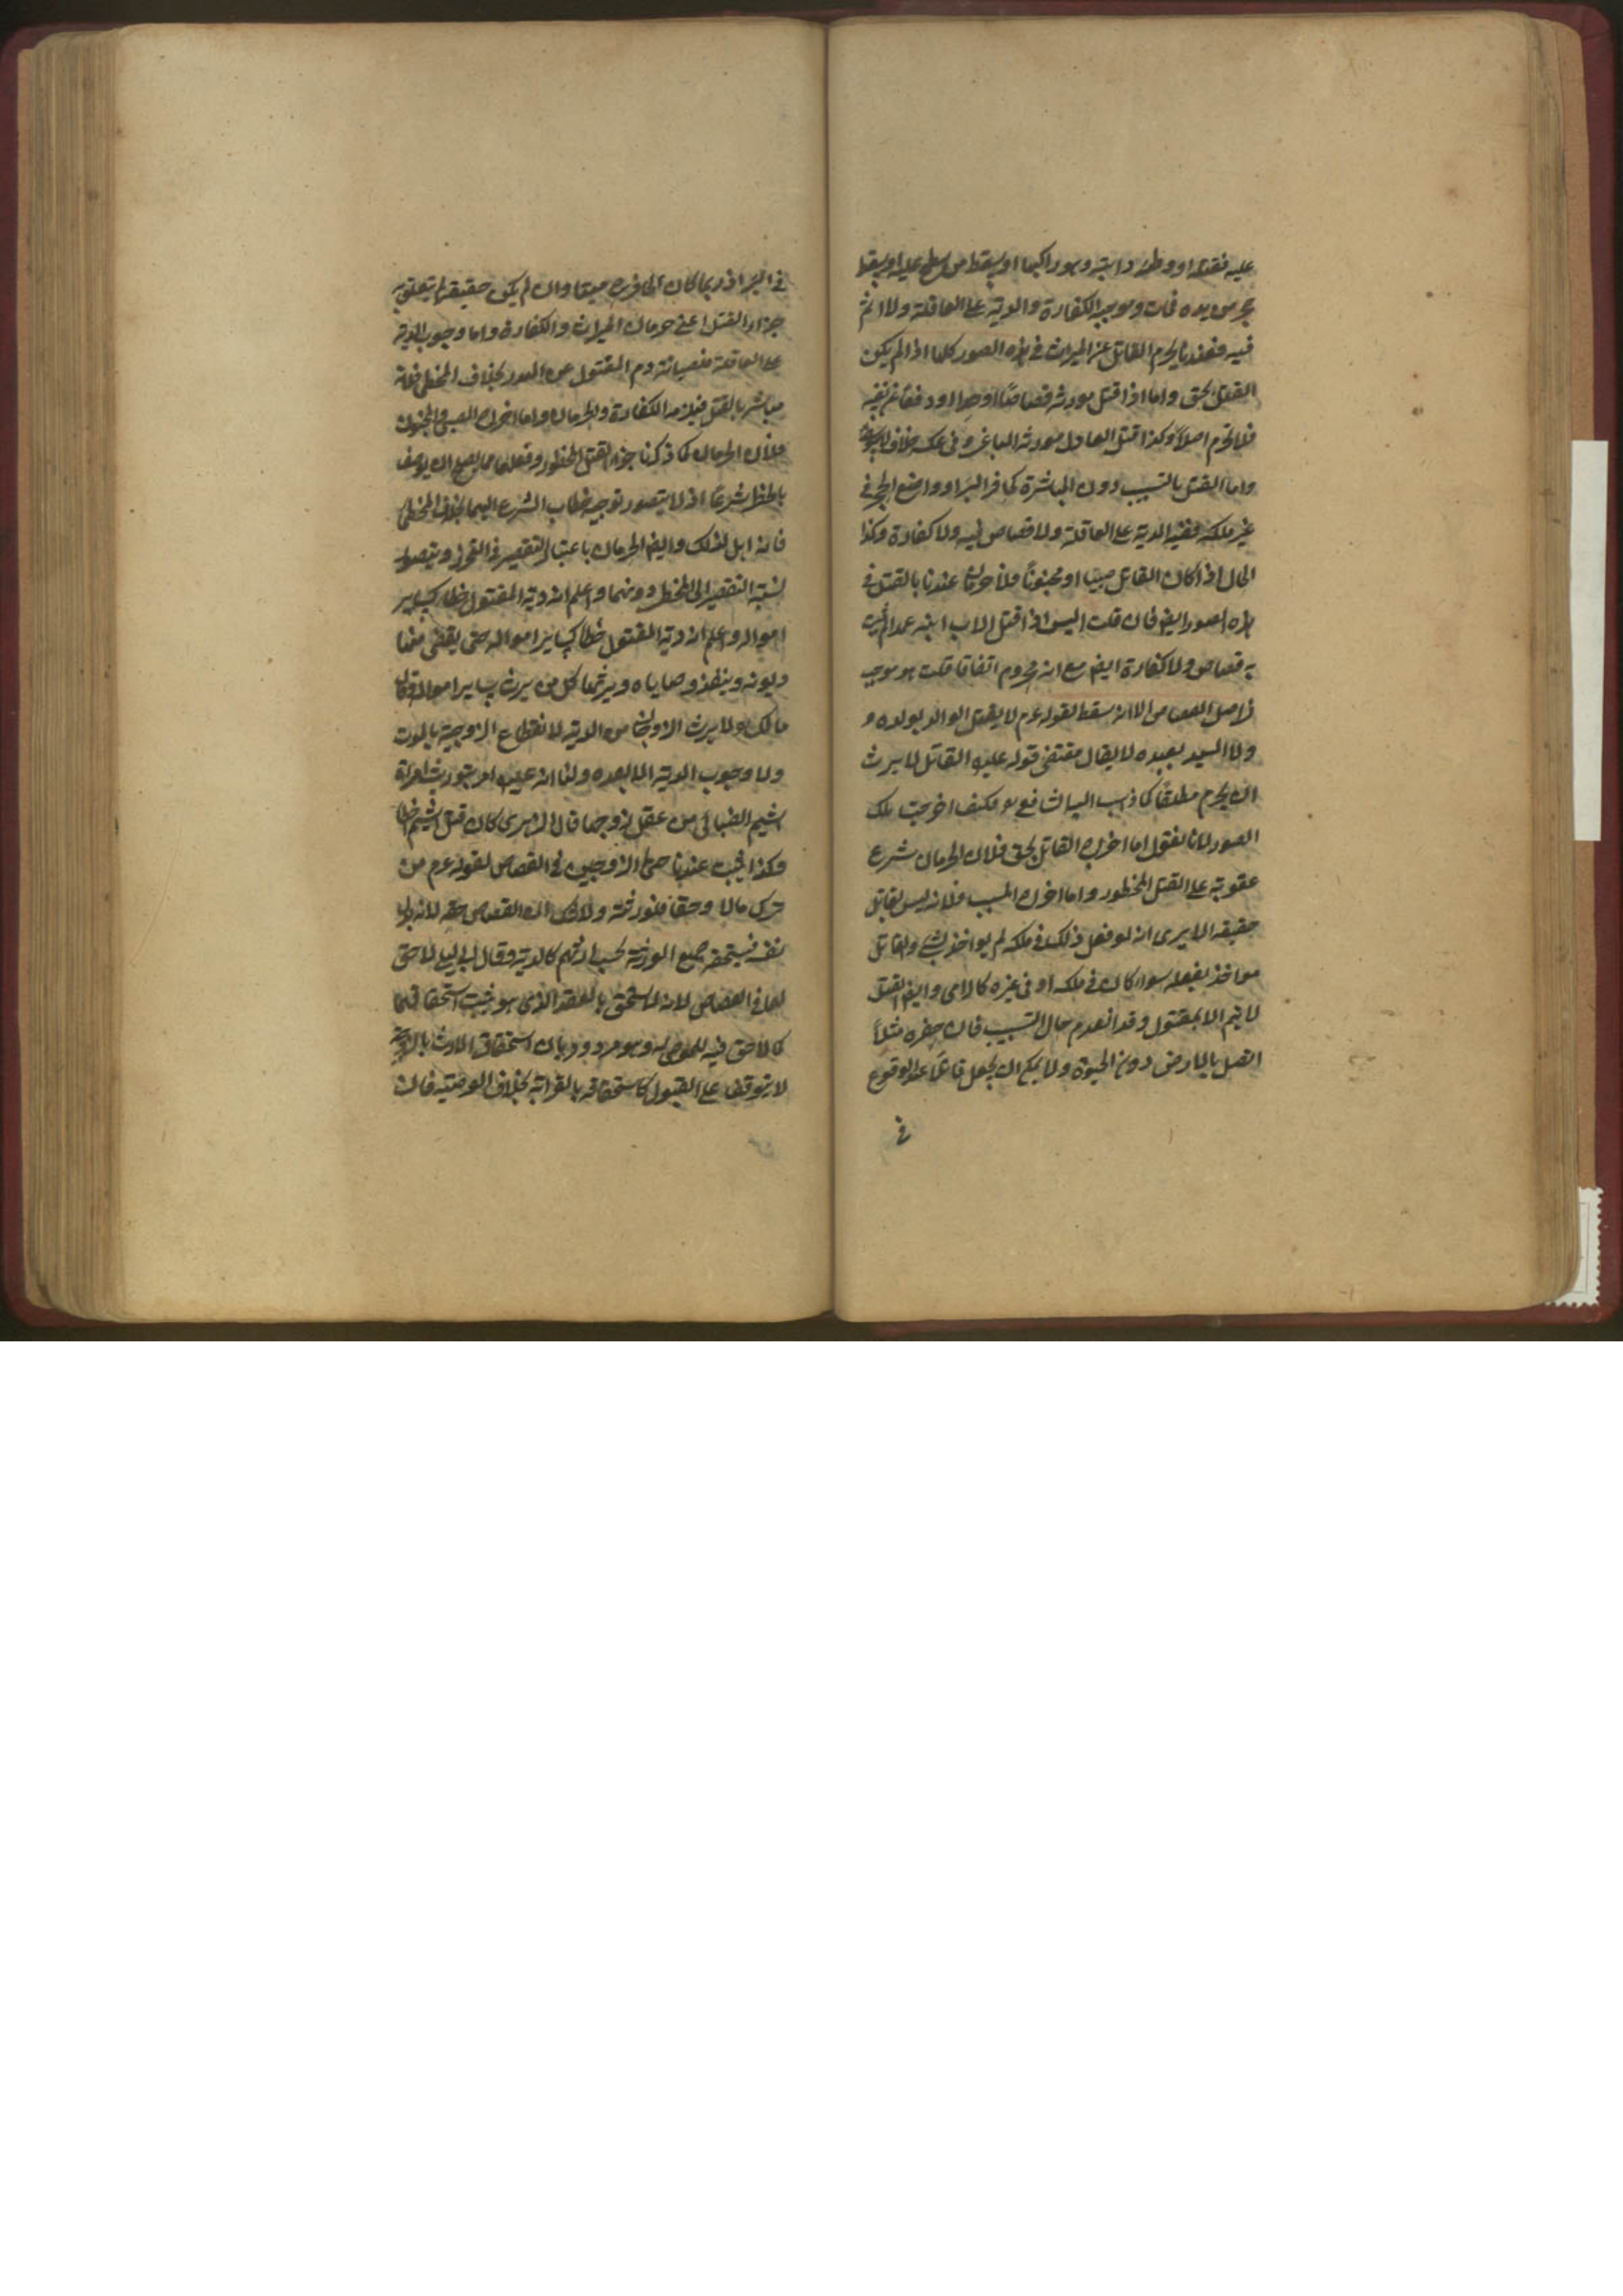 عليه فقتله او وطئه دابته وهو راكبها او يسقط من سطح عليه او يسقط
حجر من يده فمات وموجبه الكفارة والدية على العاقلة ولا اثم
فيه فعندنا يحرم القاتل عن الميراث في هذه الصور كلها اذا لم يكن
القتل بحق واما اذا قتل مورثه قصاصًا او حدا او دفعا عن نفسه
فلا يحرم اصلا وكذا قتل العادل مورثه الباغي وفي عكسه خلاف لابي يوسف
واما القتل بالتسبيب دون المباشرة كحافر البئر او واضع الحجر في
غير ملكه ففيه الدية على العاقلة ولا قصاص فيه ولا كفارة وكذا
الحال اذا كان القاتل صبيا او مجنونًا فلا حرمان عندنا بالقتل في
هذه الصور ايضا فان قلت اليس اذا قتل الاب ابنه عمدا لم يجب
به قصاص ولا كفارة ايضا مع انه محروم اتفاقا قلت هو موجب
لاصل القصاص الا انه سقط لقوله عم لا يقتل الوالد بولده و
ولا السيد بعبده لا يقال مقتضى قوله عليه القاتل لا يرث
ان يحرم مطلقًا كما ذهب اليه الشافعي فكيف اخرجت تلك
الصور لانا نقول اما اخراج القاتل بحق فلان الحرمان شرع
عقوبة على القتل المحظور واما اخراج المسبب فلانه ليس بقاتل
حقيقة الا يرى انه لو فعل ذلك في ملكه لم يواخذ بشئ والقاتل
مواخذ بفعله سواء كان في ملكه او في غيره كالرامي وايضا القتل
لا يتم الا بمقتول وقد انعدم حال التسبيب فان حفره مثلاً
اتصل بالارض دون الحيوة ولا يمكن ان يجعل قاتلا عند الوقوع
في
في البئر اذ ربما كان الحافر ميتا وان لم يكن حقيقة لم يتعلق به
جزاء القتل اعني حرمان الميراث والكفارة واما وجوب الدية
على العاقلة فلصيانة دم المقتول عن الهدر بخلاف المخطئ فانه
مباشر بالقتل فيلزمه الكفارة والحرمان واما اخراج الصبي والمجنون
فلان الحرمان كما ذكرنا جزاء القتل المحظور وفعلهما مما يصح ان يوصف
بالحظر شرعًا اذ لا يتصور توجيه خطاب الشرع اليهما بخلاف المخطئ
فانه اهل لذلك وايضا الحرمان باعتبار التقصير في التحرز ويتصور
نسبة التقصير الى المخطئ دونهما واعلم ان دية المقتول خطا كساير
امواله واعلم ان دية المقتول خطا كساير امواله حتى يقضى منها
ديونه وينفذ وصاياه ويرثها كل من يرث ساير امواله وقال
مالك لا يرث الزوجان من الدية لانقطاع الزوجية بالموت
ولا وجوب الدية الا بعده ولنا انه عليه امر بتوريث امراة
اشيم الضبابي من عقل زوجها قال الزهري كان قتل اشيم خطا
وكذا يجب عندنا حق الزوجين في القصاص لقوله عم من
ترك مالا وحقا فلورثته ولا شك ان القصاص حقه لانه بدل
نفسه فيستحقه جميع الورثة بحسب ارثهم كالدية وقال ابن ابي ليلى لا حق
لهما في القصاص لانه لا يستحق بالعقد الذي هو سبب استحقاقهما
كما لا حق فيه للموصى له وهو مردود بان استحقاق الارث بالزوجية
لا يتوقف على القبول كاستحقاقه بالقرابة بخلاف الوصية فان